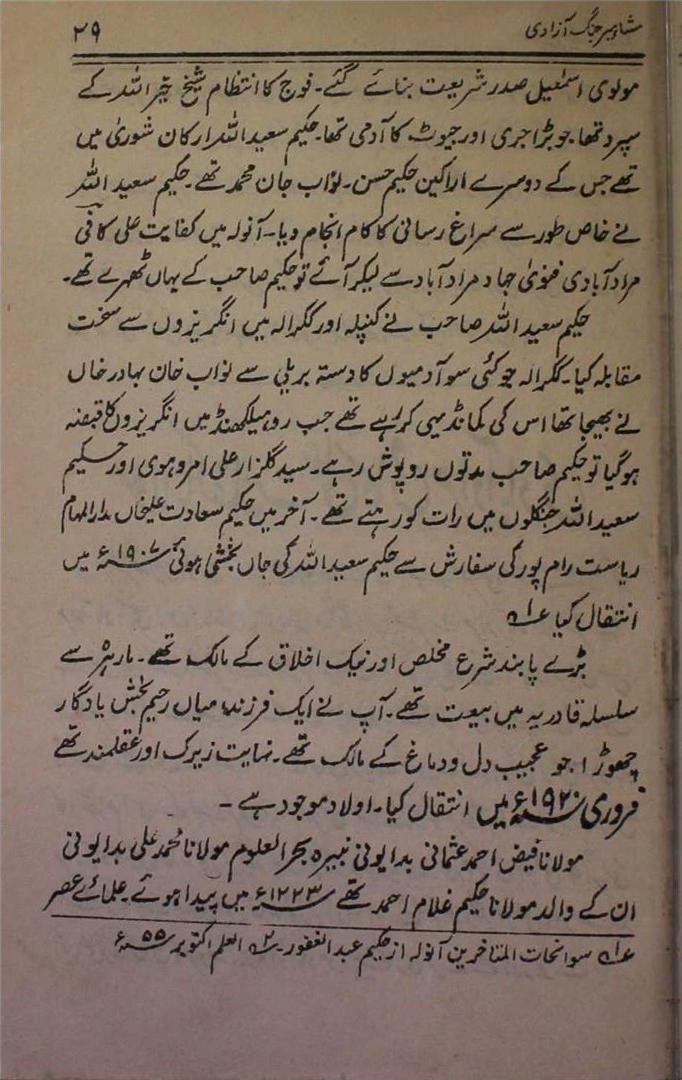 مشاہیر جنگ آزادی
۲۹
مولوی اسمٰعیل صدر شریعت بنائے گئے۔ فوج کا انتظام شیخ خیر اللہ کے
سپرد تھا۔ جو بڑا جری اور جیوٹ کا آدمی تھا۔ حکیم سعید اللہ ارکان شوریٰ میں
تھے جس کے دوسرے اراکین حکیم حسن۔ نواب جان محمد تھے۔ حکیم سعید اللہ
نے خاص طور سے سراغ رسانی کا کام انجام دیا۔ آنولہ میں کفایت علی کافی
مراد آبادی فتویٰ جہاد مراد آباد سے لیکر آئے تو حکیم صاحب کے یہاں ٹھہرے تھے۔
حکیم سعید اللہ صاحب نے کنپلہ اور ککرالہ میں انگریزوں سے سخت
مقابلہ کیا۔ ککرالہ جو کئی سو آدمیوں کا دستہ بریلی سے نواب خان بہادر خاں
نے بھیجا تھا اس کی کمانڈ یہی کر رہے تھے جب روہیلکھنڈ میں انگریزوں کا قبضہ
ہوگیا تو حکیم صاحب مدتوں روپوش رہے۔ سید گلزار علی امروہوی اور حکیم
سعید اللہ جنگلوں میں رات کو رہتے تھے۔ آخر میں حکیم سعادت علیخاں مدار المہام
ریاست رام پور کی سفارش سے حکیم سعید اللہ کی جاں بخشی ہوئی ۱۹۰۷ء میں
انتقال کیا عـ۱ـہ
بڑے پابند شرع مخلص اور نیک اخلاق کے مالک تھے۔ مارہرہ سے
سلسلہ قادریہ میں بیعت تھے۔ آپ نے ایک فرزند میاں رحیم بخش یادگار
چھوڑا۔ جو عجیب دل و دماغ کے مالک تھے۔ نہایت زیرک اور عقلمند تھے
فروری ۱۹۲۰ء میں انتقال کیا۔ اولاد موجود ہے ۔
مولانا فیض احمد عثمانی بدایونی نبیرہ بحر العلوم مولانا محمد علی بدایونی
ان کے والد مولانا حکیم غلام احمد تھے ۱۲۲۳ء میں پیدا ہوئے۔ علمائے عصر
عـ۱ـہ سوانحات المتاخرین آنولہ از حکیم عبد الغفور۔ ۲ـہ العلم اکتوبر ۵۵ء